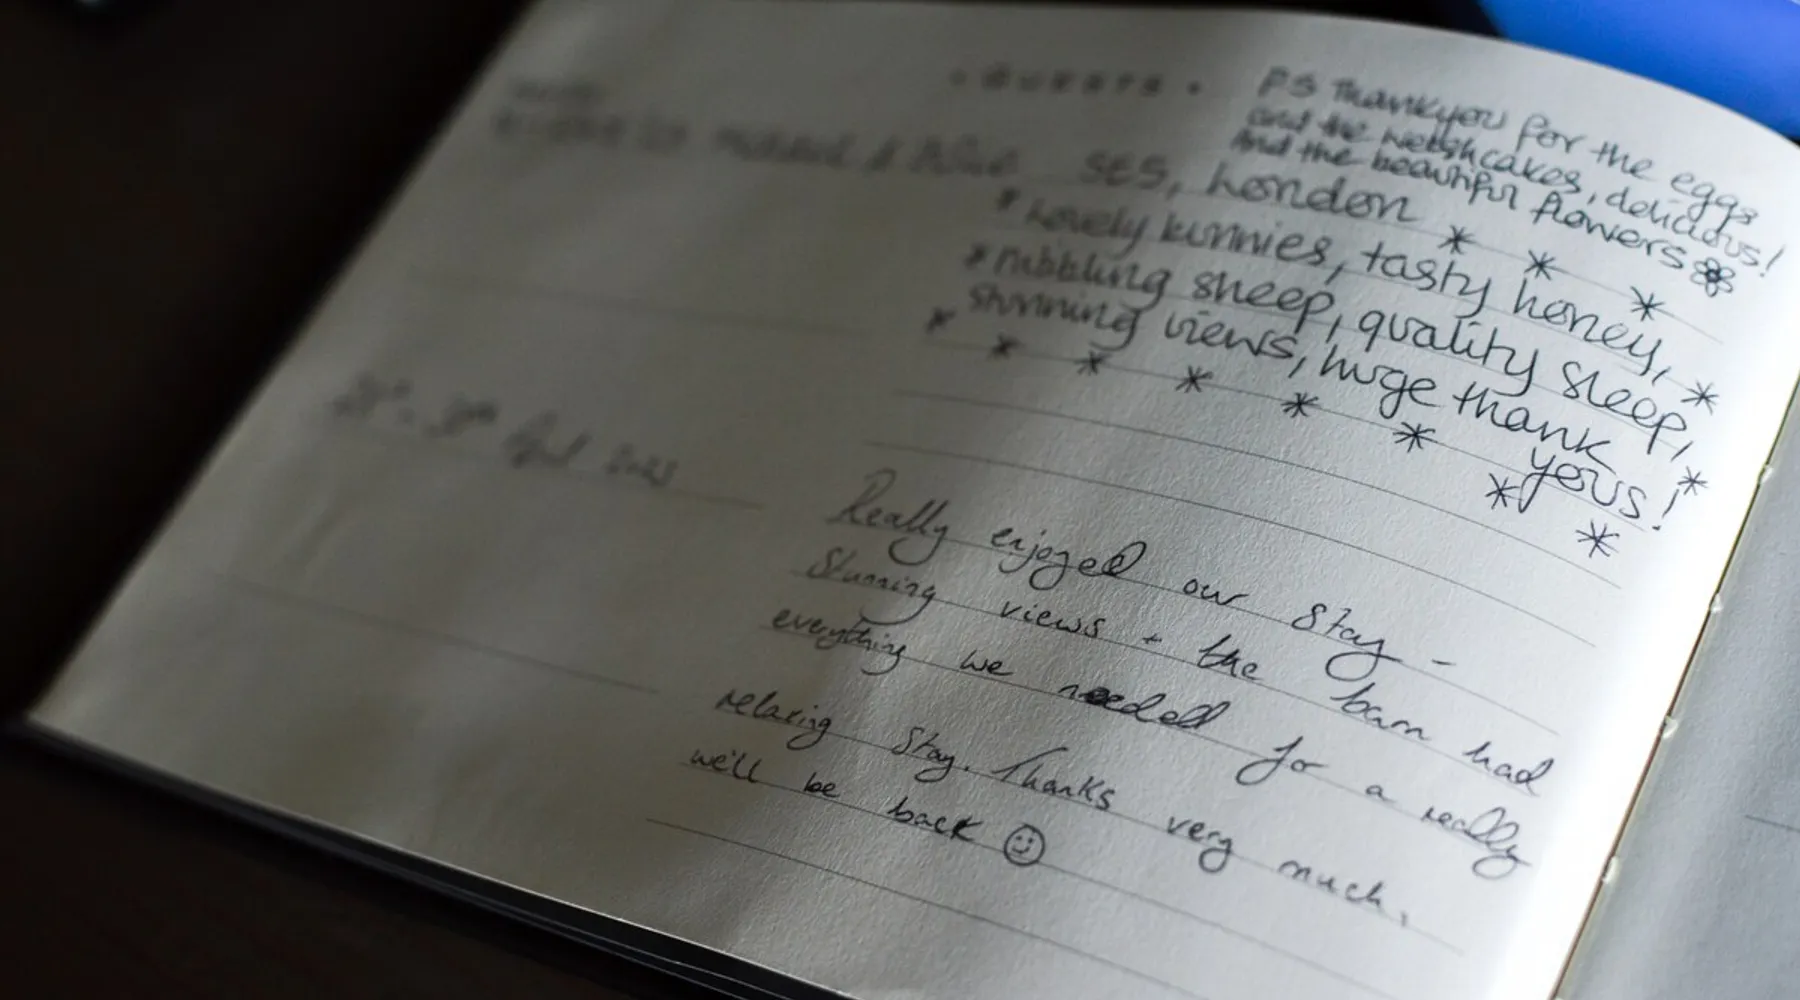 • GUESTS •
PS Thankyou for the eggs
and the welshcakes, delicious!
And the beautiful flowers
SE5, London
Lovely bunnies, tasty honey,
nibbling sheep, quality sleep,
stunning views, huge thank
yous!
April 2023
Really enjoyed our stay -
Stunning views + the barn had
everything we needed for a really
relaxing stay. Thanks very much,
we'll be back ☺